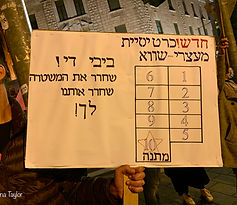 חדש!כרטיסיית
מעצרי-שווא
6 1
7 2
8 3
9 4
10 5
מתנה
ביבי די!
שחרר את המשטרה
שחרר אותנו
לך!
na Taylor